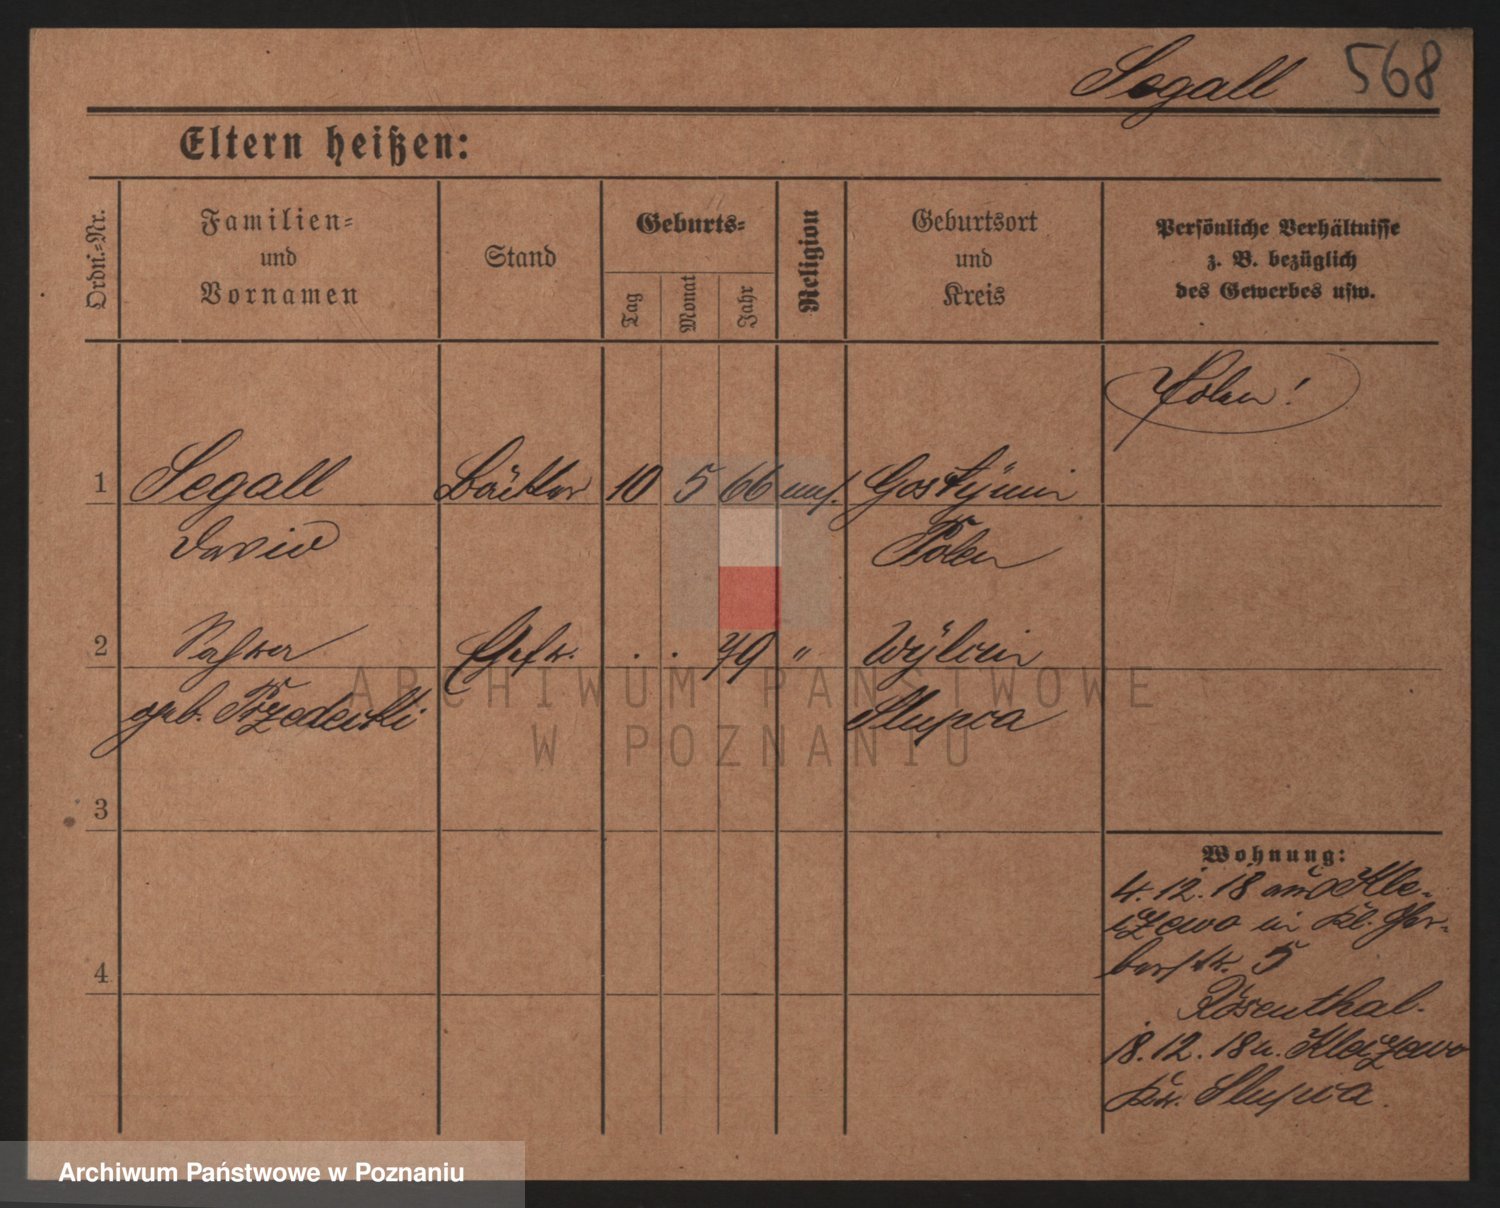 Segall 568
Eltern heißen:
Ordn.-Nr.
Familien-
und
Vornamen
Stand
Geburts-
Tag
Monat
Jahr
Religion
Geburtsort
und
Kreis
Persönliche Verhältnisse
z. B. bezüglich
des Gewerbes usw.
Polen!
1 Segall Bäcker 10 5 66 mos. Gostynin
David Polen
2 Ehefr. . . 79 "
geb. Slupca
3
4
Wohnung:
4. 12. 18 aus Kle-
czewo in Kl. Ger-
berstr. 5
Rosenthal.
18. 12. 18 n. Kleczewo
Kr. Slupca.
ARCHIWUM PAŃSTWOWE
W POZNANIU
Archiwum Państwowe w Poznaniu